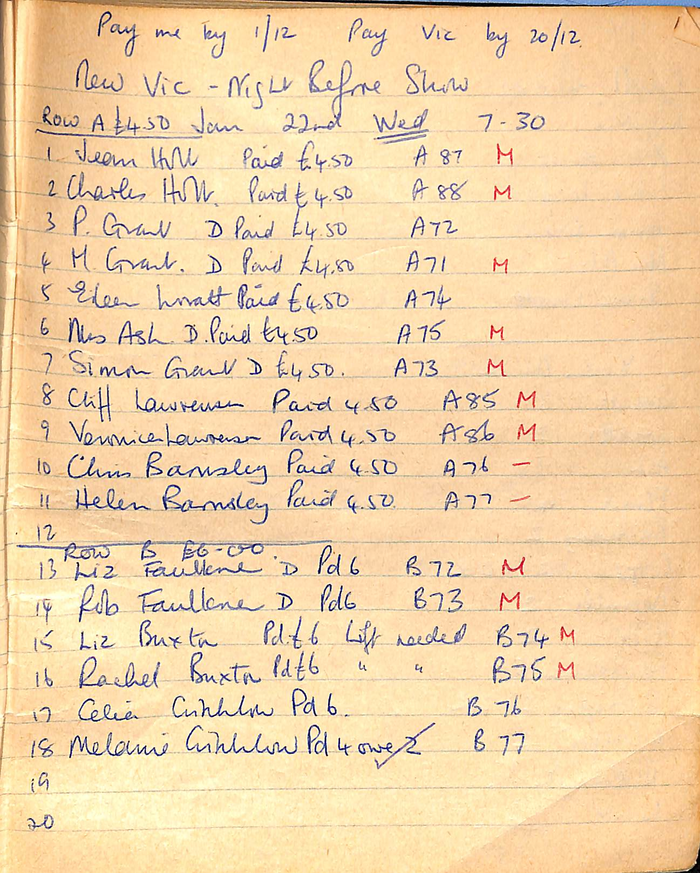 1
Pay me by 1/12 Pay Vic by 20/12
New Vic - Night Before Show
Row A £4.50 Jan 22nd Wed 7-30
1 Jean Holt Paid £4.50 A 87 M
2 Charles Holt. Paid £4.50 A 88 M
3 P. Grant D Paid £4.50 A72
4 M. Grant. D Paid £4.50 A71 M
5 Eileen Paid £4.50 A 74
6 Mrs Ash D. Paid £4.50 A 75 M
7 Simon Grant D £4.50. A 73 M
8 Cliff Lawrenson Paid 4.50 A85 M
9 Veronica Lawrenson Paid 4.50 A86 M
10 Chris Barnsley Paid 4.50 A76 -
11 Helen Barnsley Paid 4.50. A77 -
12
Row B £6-00.
13 Liz Faulkner D Pd 6 B 72 M
14 Rob Faulkner D Pd6 B73 M
15 Liz Buxton Pd £6 Lift needed B74 M
16 Rachel Buxton Pd £6 " " B75 M
17 Celia Critchlow Pd 6. B 76
18 Melanie Critchlow Pd 4 owe 2 B 77
19
20